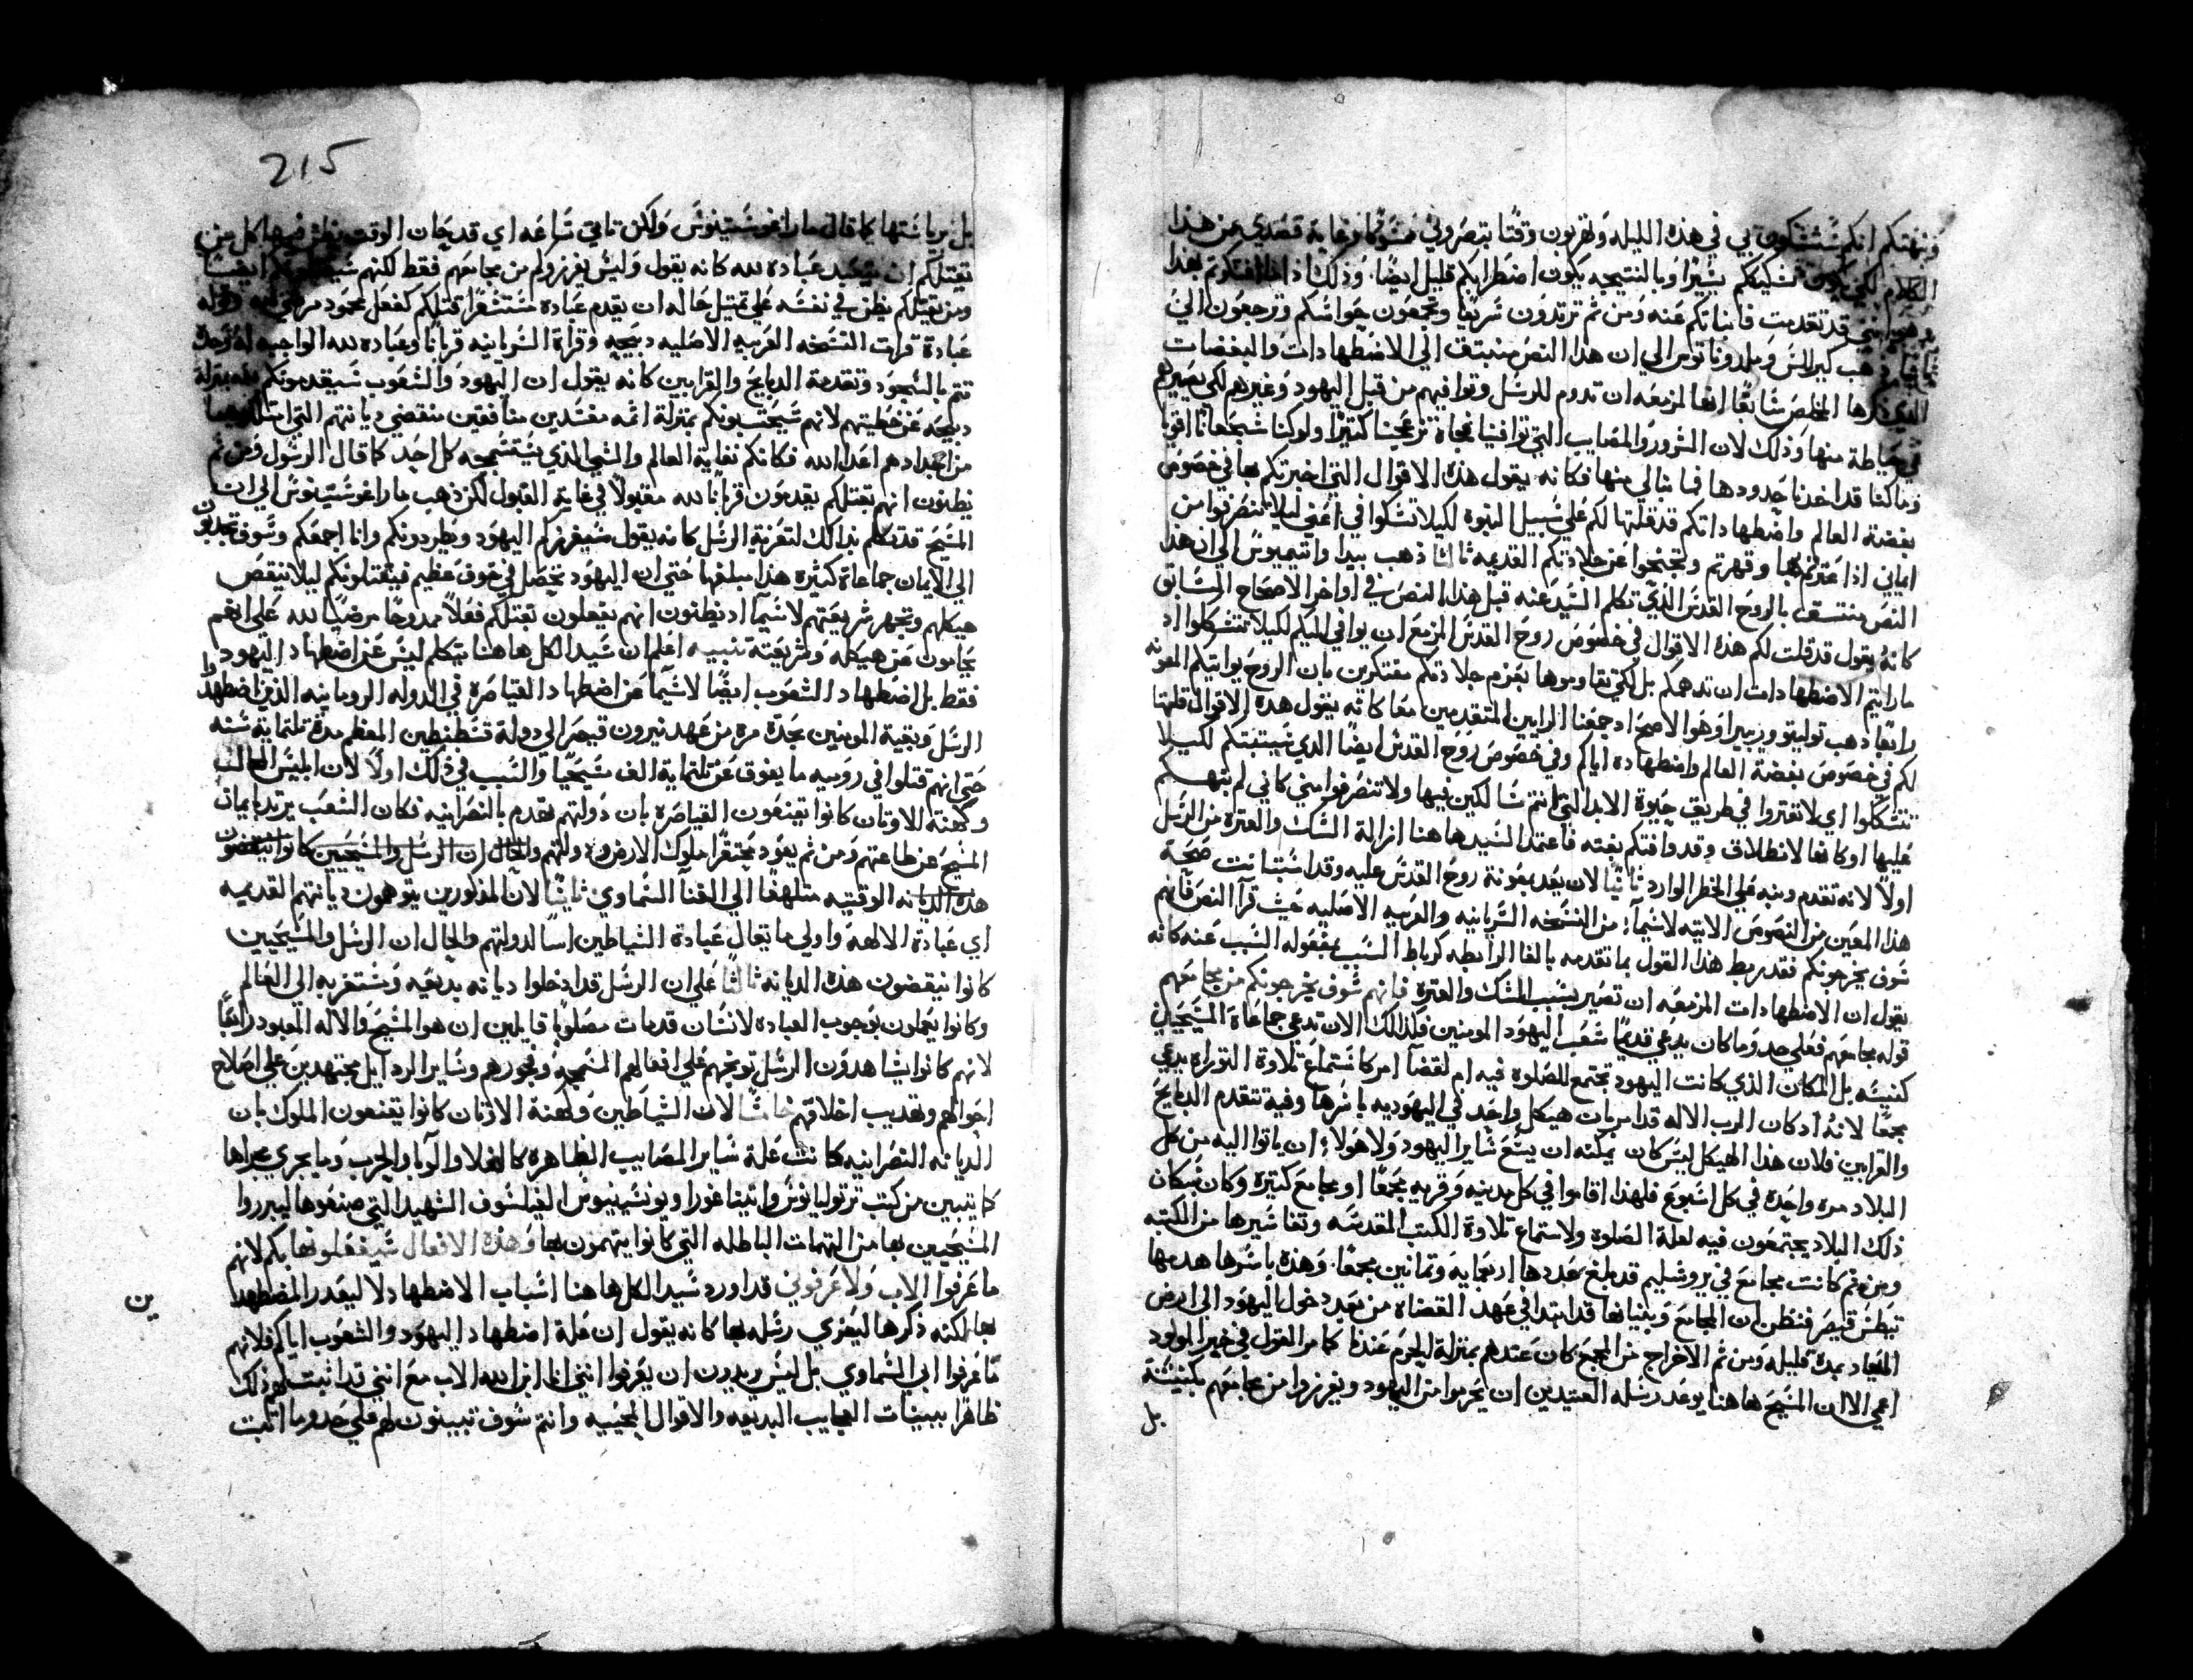 ونبهتكم انكم ستشكون بي في هذه الليله وتهربون وقتًا بتصروني ممسوكا وغاية قصدي من هذا
الكلام لكي يكون تشكيككم يسيرًا وبالنتيجه يكون اضطرابكم قليل ايضًا وذلك اذا افتكرتم بهذا
وهو انني قد تقدمت فانباتكم عنه ومن ثم ترتدون سريعًا وتجمعون حواسكم وترجعون اليّ
ثانيًا ذهب كيرلس وملدوناتوس الي ان هذا النص منعتف الي الاضطهادات والبغضات
الذي ذكرها المخلص سابقًا انها لمزمعه ان تدوم للرسل وتوافيهم من قبل اليهود وغيرهم لكي يصيرهم
في حياطة منها وذلك لان الشرور والمصايب التي توافينا فجاة تزعجنا كثيرًا ولو كنا شجعانًا اقويا
وما كنا قد اخذنا حدودها فما نبالي منها فكانه يقول هذه الاقوال التي اخبرتكم بها في خصوص
بغضة العالم واضطهاداتكم قد قلتها لكم علي سبيل النبوه لكيلا تشكوا في اعني ليلا تنصرفوا من
ايماني اذا عثرتم بها وقهرتم وتجنحوا عن جلادتكم القديمه ثالثا ذهب بيدا واتيميوس الي ان هذا
النص منتسق بالروح القدس الذي تكلم السيد عنه قبل هذا النص في اواخر الاصحاح السابق
كانه يقول قد قلت لكم هذه الاقوال في خصوص روح القدس المزمع ان يوافي اليكم لكيلا تتشككوا اذ
ما رايتم الاضطهادات ان تدهمكم بل لكي تقاوموها بعزم جلادتكم مفتكرين بان الروح يواتيكم المعونه
رابعًا ذهب توليتو وريبيرا وهو الاصح اذ جمعنا الرايين المتقدمين معًا كانه يقول هذه الاقوال قلتها
لكم في خصوص بغضة العالم واضطهاده اياكم وفي خصوص روح القدس ايضًا الذي سيثبتكم لكيلا
تتشككوا اي لا تفتروا في طريق حيوة الابد التي انتم سالكين فيها ولا تنصرفوا مني كاني لم انبهكم
عليها او كانها لانطلاق وقد وافتكم بغته فاعتمد السيد هاهنا ازالة الشك والعثره من الرسل
اولًا لانه تقدم ونبه علي الخطر الوارد ثانيًا لان يعد بمعونة روح القدس عليه وقد استبانت صحة
هذا المعين من النصوص الاتيه لاسيما من النسخه السريانيه والعربيه الاصليه حيث قرآ النص فانهم
سوف يخرجونكم فقد ربط هذا القول بما تقدمه بالفا الرابطه كرباط السبب بمفعوله السبب عنه كانه
يقول ان الاضطهادات المزمعه ان تصير بسبب الشك والعثره فانهم سوف يخرجونكم من مجامعهم
قوله مجامعهم فعلي حد وما كان يدعي قديمًا شعب اليهود المومنين فكذلك الان تدعي جماعاة المسيحيين
كنيسه بل المكان الذي كانت اليهود تجتمع للصلوه فيه ام لقضآ امر كاستماع تلاوة التوراه يدعي
مجمعًا لانه اذ كان الرب الاله قد امر بان هيكل واحد في اليهوديه باسرها وفيه تتقدم الدبايح
والقرابين فلان هذا الهيكل ليس كان يمكنه ان يسع ساير اليهود ولا هولا ان ياتوا اليه من كل
البلاد مره واحده في كل اسبوع فلهذا اقاموا في كل مدينه وقريه مجمعًا او مجامع كثيره وكان سكان
ذلك البلاد يجتمعون فيه لعلة الصلوه ولاستماع تلاوة الكتب المقدسه وتفاسيرها من الكتبه
ومن ثم كانت مجامع في يروشليم قد بلغ عددها اربعمايه وثمانين مجمعًا وهذه باسرها هدمها
تيطس قيصر فنظن ان المجامع وبنيانها قد ابتدا في عهد القضاه من بعد دخول اليهود الي ارض
الميعاد بمدة قليله ومن ثم الاخراج من المجمع كان عندهم بمنزلة ليحرم عندنا كما مر القول في خبر المولود
اعمي الا ان المسيح هاهنا يوعد رسله العتيدين ان يحرموا من اليهود ويفرزوا من مجامعهم بكنيسة
بل
215
بل برياستها كما قال مار اغوستينوس ولكن تاتي ساعه اي قد حان الوقت يظن فيها كل من
يقتلكم ان يتعبد عباده لله كانه يقول وليس يفرزوكم من مجامعهم فقط لكنهم سيقتلونكم ايضًا
ومن يقتلكم يظن في نفسه علي تمثيل حاله ان يقدم عبادة مستشعرًا قتلكم كفعل محمود مرضي لله قوله
عبادة قرات النسخه العربيه الاصليه دبيحه وقراة السريانيه قربانًا وعباده لله الواجبه له وحده
تتم بالسجود وتقدمة الدبايح والقرابين كانه يقول ان اليهود والشعوب سيقدمونكم لله بمنزلة
دبيحه عن خطيتهم لانهم سيحتسبونكم بمنزلة اثمه مفسدين منافقين منقضي ديانتهم التي استلموها
من اجدادهم اعدا الله فكانكم نفاية العالم والشي الذي يستسمجه كل احد كما قال الرسول ومن ثم
يظنون انهم بقتلكم يقدمون قربانًا لله مقبولًا في غاية القبول لكن ذهب مار اغوستينوس الي ان
المسيح قد تكلم بذالك لتعزية الرسل كانه يقول سيفرزكم اليهود ويطردونكم وانا اجمعكم وسوف تجدبون
الي الايمان جماعاة كثيره هذا مبلغها حتي ان اليهود تحصل في خوف عظيم فيقتلونكم ليلا تنقض
هيكلهم وتجهر شريعتهم لاسيما اد يظنون انهم يفعلون بقتلكم فعلًا ممدوحًا مرضيًا لله علي انهم
يحامون عن هيكله وشريعته تنبيه اعلم ان سيد الكل هاهنا يتكلم ليس عن اضطهاد اليهود
فقط بل اضطهاد الشعوب ايضًا لاسيما عن اضطهاد القياصره في الدوله الرومانيه الذين اضطهدوا
الرسل وبقية المومنين بجدة مره من عهد نيرون قيصر الي دولة قسطنطين المعظم مدة تلتماية سنه
حتي انهم قتلوا في روميه ما يفوق عن تلتماية الف مسيحيًا والسبب في ذلك اولًا لان ابليس الحالف
وكهنة الاوتان كانوا يقنعون القياصره بان دولتهم تهدم بالنصرانيه فكان الشعب يرتد بايمان
المسيح عن طاعتهم ومن ثم يعود محتقرًا ملوك الارض ودولتهم والحال ان الرسل والمسيحيين كانوا ينقضون
هذه الديانه الوقتيه متلهفًا الي الغنآ السماوي ثانيًا لان المذكورين يتوهمون ديانتهم القديمه
اي عبادة الالهة واولي ما يقال عبادة الشياطين اسًا لدولتهم والحال ان الرسل والمسيحيين
كانوا ينقضون هذه الديانه ثالثًا علي ان الرسل قد ادخلوا ديانه بديعه ومستغربه الي العالم
وكانوا يعلمون بوجوب العباده لانسان قد مات مصلوبًا قايلين ان هو المسيح والاله المعبود رابعًا
لانهم كانوا يشاهدون الرسل توبخهم علي افعالهم السمجه وفجورهم وساير الردايل مجتهدين علي اصلاح
احوالهم وتهديب اخلاقهم خامسًا لان الشياطين وكهنة الاوتان كانوا يقنعون الملوك بان
الديانه النصرانيه كانت علة ساير المصايب الظاهره كالغلا والوبا والحرب وما يجري مجراها
كما يتبين من كتب ترتوليانوس واتيناغورا ويوستينيوس الفيلسوف الشهيد التي صنفوها ليبرروا
المسيحيين بها من التهمات الباطله التي كانوا يتهمون بها وهذه الافعال سيفعلونها بكم لانهم
ما عرفوا الاب ولا عرفوني قد اورد سيد الكل هاهنا اسباب الاضطهاد لا ليعدر المضطهدين
بها لكنه ذكرها ليعزي رسله بها كانه يقول ان علة اضطهاد اليهود والشعوب اياكم فلانهم
ما عرفوا ابي السماوي بل ليس يريدون ان يعرفوا انني انا ابن الله الاب مع انني قد اثبت لهم ذلك
ظاهرًا ببينات العجايب البديعه والاقوال المحييه وانتم سوف تبينون لهم علي حد وما اتبت